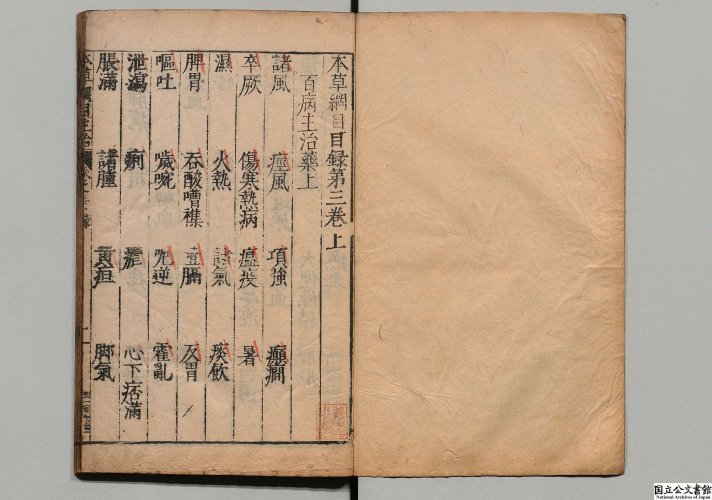 本草綱目目録第三巻上
百病主治藥上
諸風 痙風 項強 癲癇
卒厥 傷寒熱病 瘟疫 暑
濕 火熱 諸氣 痰飲
脾胃 吞酸嘈襍 噎膈 反胃
嘔吐 噦啘 呃逆 霍亂
泄瀉 痢 瘧 心下痞滿
脹滿 諸腫 黃疸 脚氣
国立公文書館
National Archives of Japan